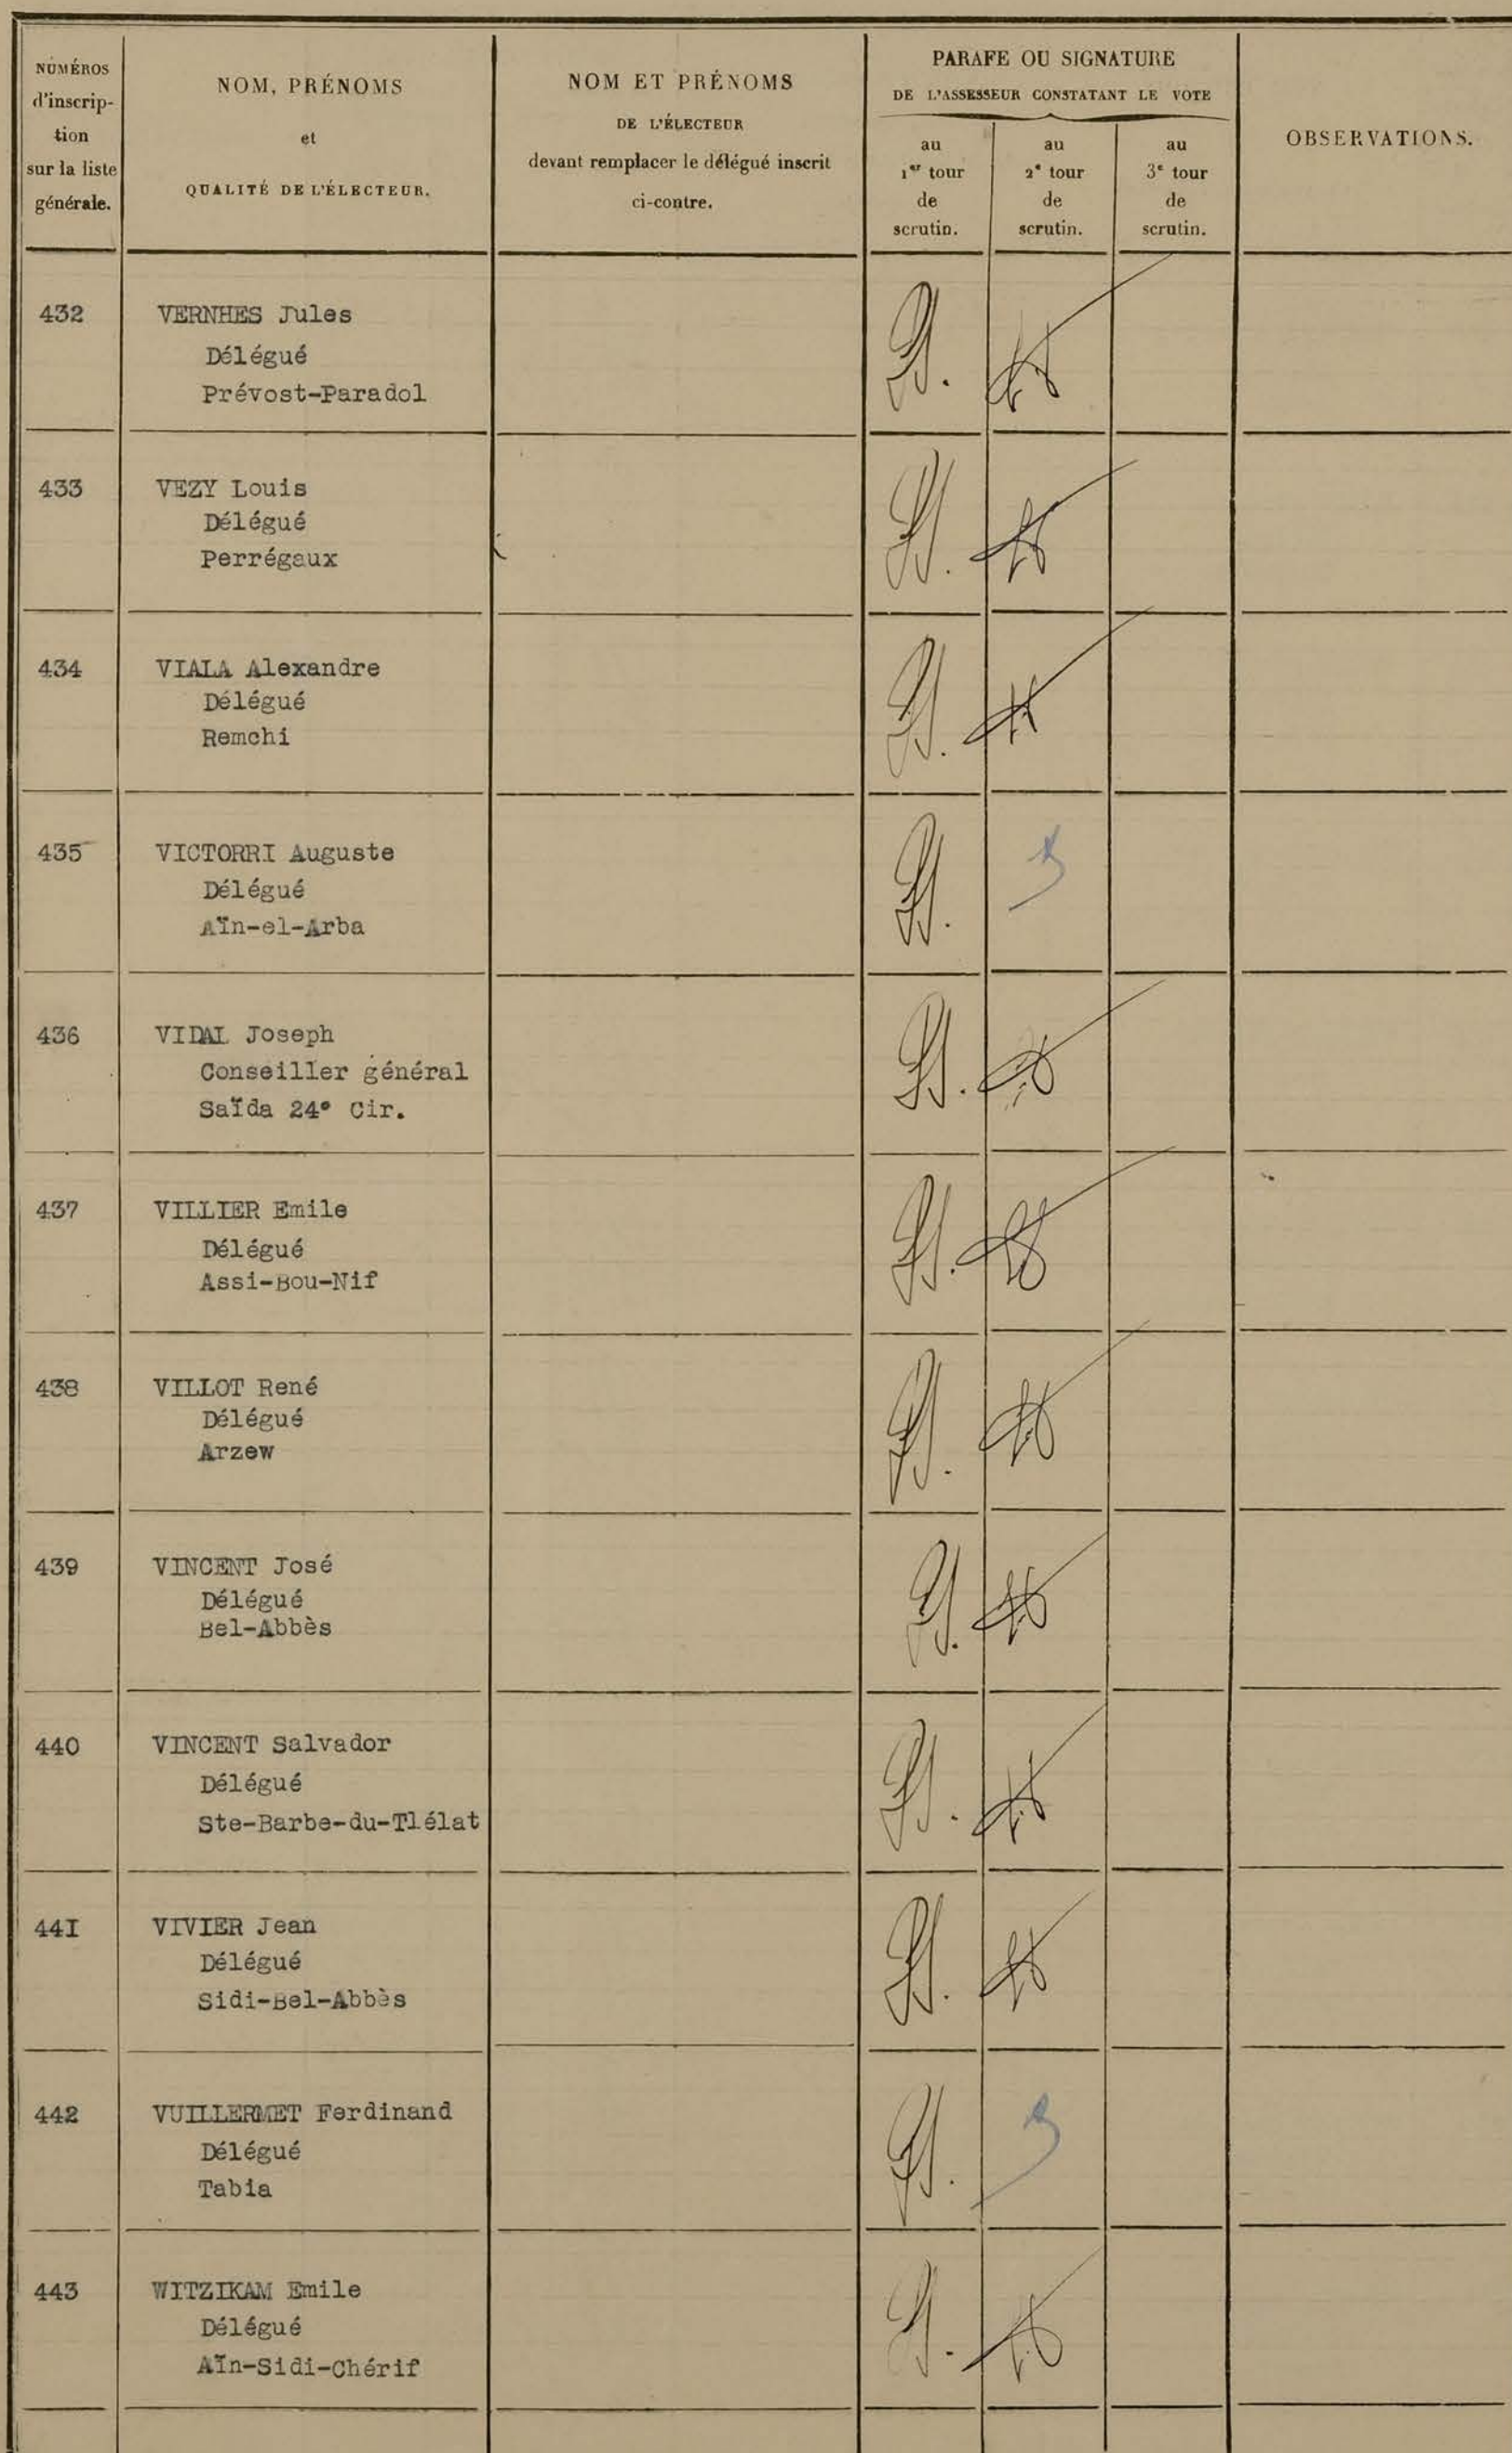 NUMÉROS
d'inscrip-
tion
sur la liste
générale.
NOM, PRÉNOMS
et
QUALITÉ DE L'ÉLECTEUR.
NOM ET PRÉNOMS
DE L'ÉLECTEUR
devant remplacer le délégué inscrit
ci-contre.
PARAFE OU SIGNATURE
DE L'ASSESSEUR CONSTATANT LE VOTE
au
1er tour
de
scrutin.
au
2e tour
de
scrutin.
au
3e tour
de
scrutin.
OBSERVATIONS.
432 VERNHES Jules
Délégué
Prévost-Paradol
433 VEZY Louis
Délégué
Perrégaux
434 VIALA Alexandre
Délégué
Remchi
435 VICTORRI Auguste
Délégué
Aïn-el-Arba
436 VIDAL Joseph
Conseiller général
Saïda 24° Cir.
437 VILLIER Emile
Délégué
Assi-Bou-Nif
438 VILLOT René
Délégué
Arzew
439 VINCENT José
Délégué
Bel-Abbès
440 VINCENT Salvador
Délégué
Ste-Barbe-du-Tlélat
44I VIVIER Jean
Délégué
Sidi-Bel-Abbès
442 VUILLERMET Ferdinand
Délégué
Tabia
443 WITZIKAM Emile
Délégué
Aïn-Sidi-Chérif